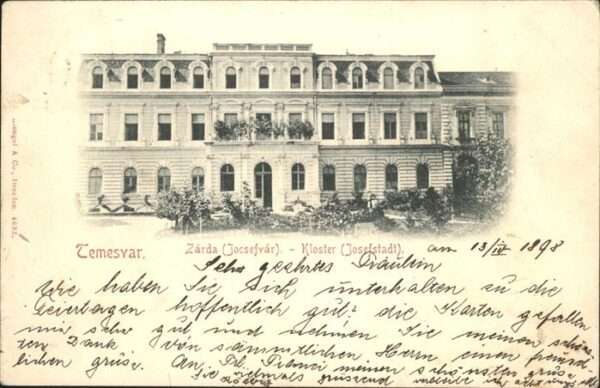 Temesvar.
Zárda (Jocsefvár). - Kloster (Josefstadt).
am 13/IV 1898
Sehr geehrtes Fräulein
Wie haben Sie Sich unterhalten zu die
Feiertagen hoffentlich gut: die Karten gefallen
mir sehr gut, und nehmen Sie meinen schöns-
ten Dank von sämmtlichen Herrn einen freund-
lichen grüs. An, meinen schönsten grus.
Sie nochmals grüssend